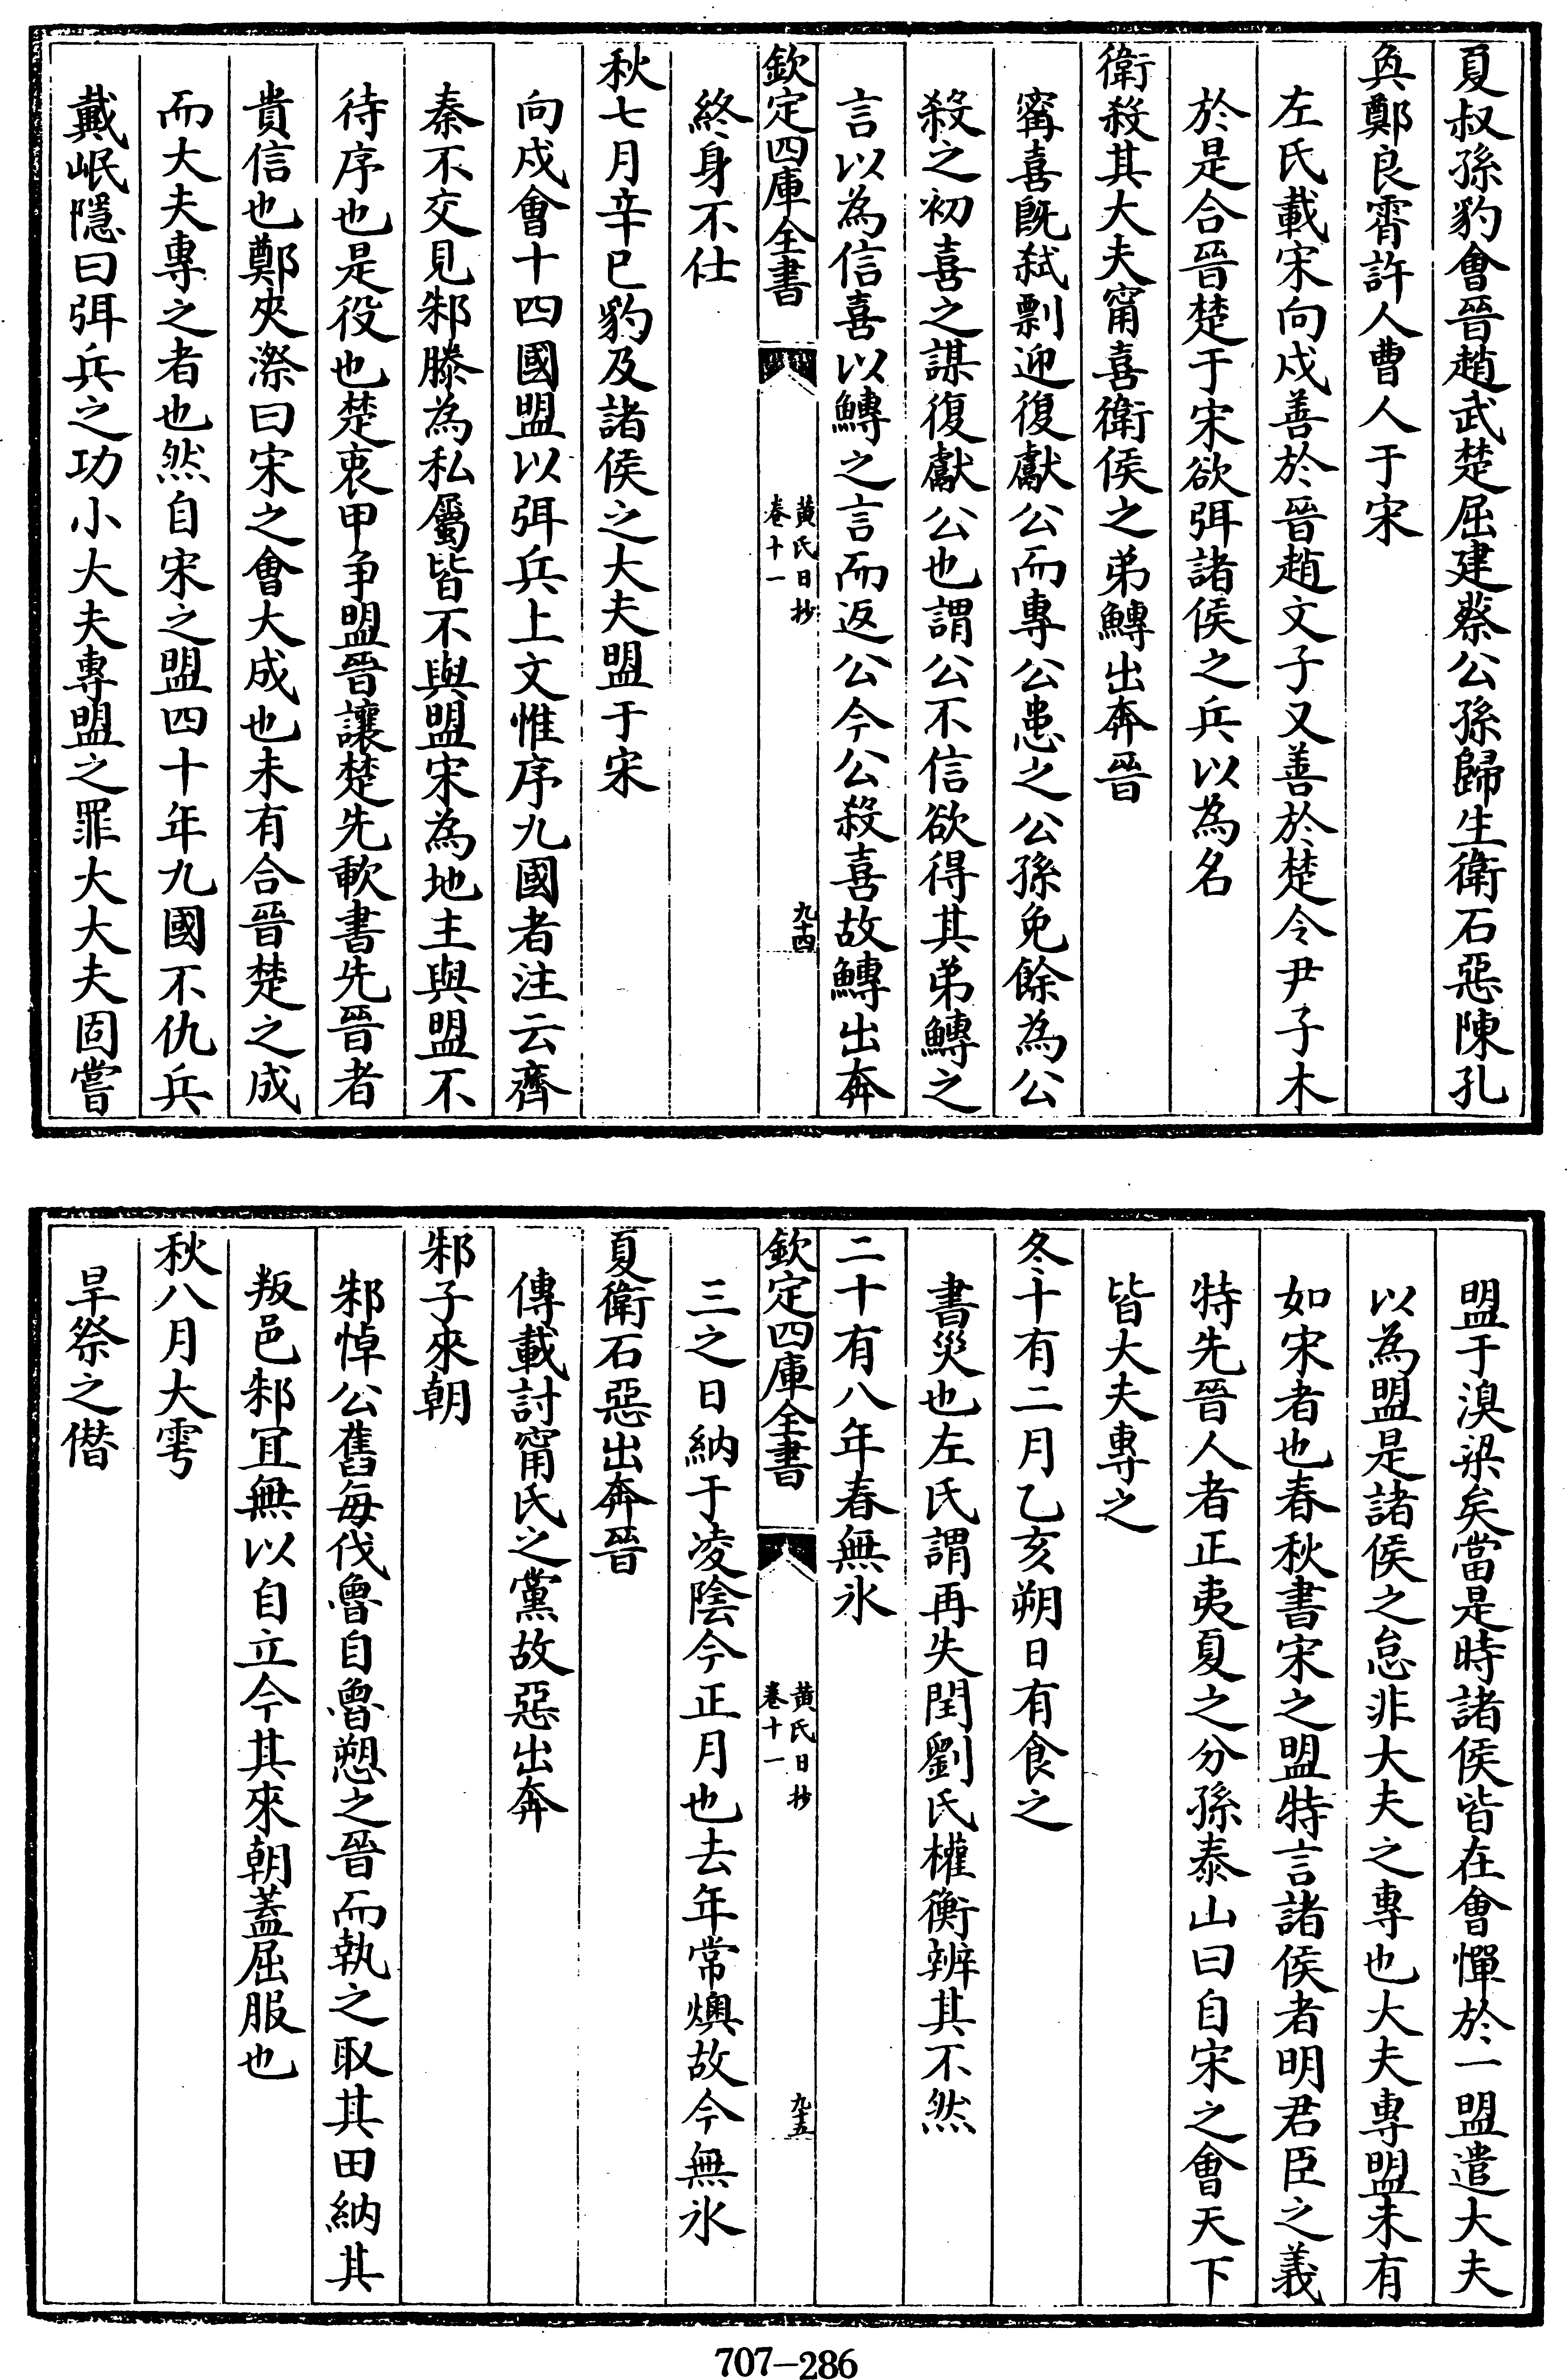 夏叔孫豹會晉趙武楚屈建蔡公孫歸生衛石惡陳孔
奐鄭良霄許人曹人于宋
左氏載宋向戍善於晉趙文子又善於楚令尹子木
於是合晉楚于宋欲弭諸侯之兵以為名
衛殺其大夫甯喜衛侯之弟鱄出奔晉
甯喜既弑剽迎復獻公而專公患之公孫免餘為公
殺之初喜之謀復獻公也謂公不信欲得其弟鱄之
言以為信喜以鱄之言而返公今公殺喜故鱄出奔
欽定四庫全書
黄氏日抄
卷十一
九十四
終身不仕
秋七月辛巳豹及諸侯之大夫盟于宋
向戍會十四國盟以弭兵上文惟序九國者注云齊
秦不交見邾滕為私屬皆不與盟宋為地主與盟不
待序也是役也楚衷甲争盟晉讓楚先歃書先晉者
貴信也鄭夾漈曰宋之會大成也未有合晉楚之成
而大夫專之者也然自宋之盟四十年九國不仇兵
戴岷隱曰弭兵之功小大夫專盟之罪大大夫固嘗
盟于溴梁矣當是時諸侯皆在會憚於一盟遣大夫
以為盟是諸侯之怠非大夫之專也大夫專盟未有
如宋者也春秋書宋之盟特言諸侯者明君臣之義
特先晉人者正夷夏之分孫泰山曰自宋之會天下
皆大夫專之
冬十有二月乙亥朔日有食之
書災也左氏謂再失閏劉氏權衡辨其不然
二十有八年春無氷
欽定四庫全書
黄氏日抄
卷十一
九十五
三之日納于凌陰今正月也去年常燠故今無氷
夏衛石惡出奔晉
傳載討甯氏之黨故惡出奔
邾子來朝
邾悼公舊每伐魯自魯愬之晉而執之取其田納其
叛邑邾冝無以自立今其來朝蓋屈服也
秋八月大雩
旱祭之僣
707—286